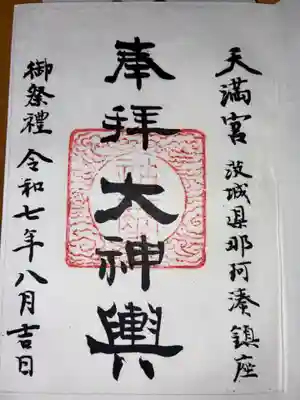 天満宮 茨城県那珂湊鎮座
奉拝大神輿
御祭禮 令和七年八月吉日